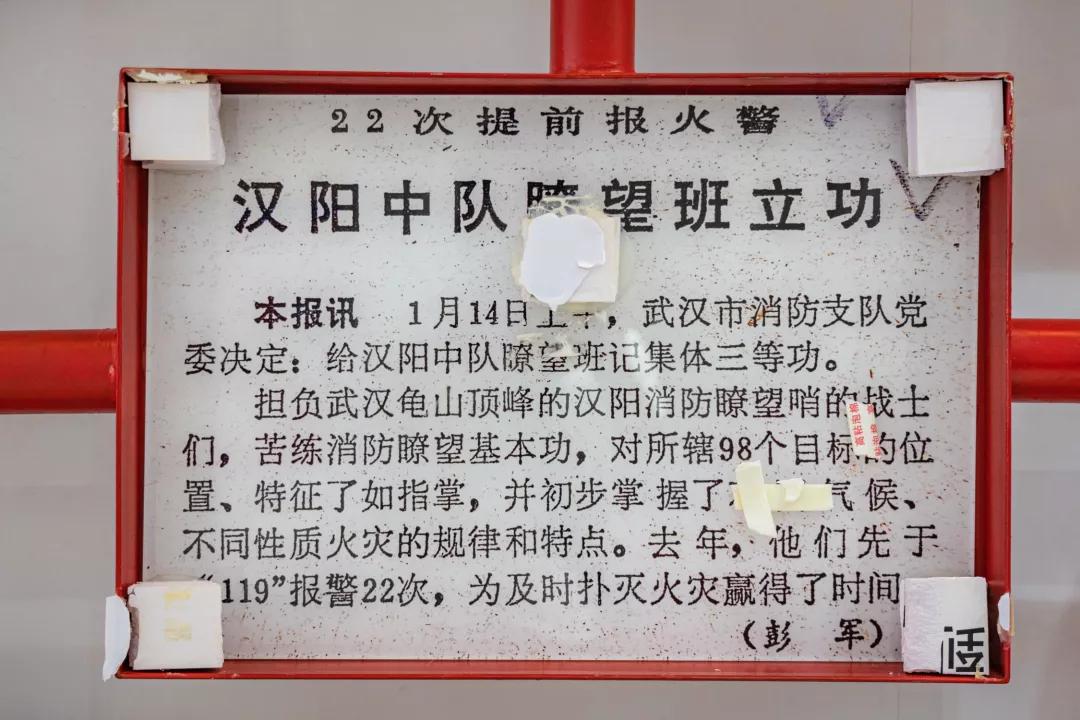 22次提前报火警
汉阳中队瞭望班立功
本报讯 1月14日上午，武汉市消防支队党
委决定：给汉阳中队瞭望班记集体三等功。
担负武汉龟山顶峰的汉阳消防瞭望哨的战士
们，苦练消防瞭望基本功，对所辖98个目标的位
置、特征了如指掌，并初步掌握了 气候、
不同性质火灾的规律和特点。去年，他们先于
“119”报警22次，为及时扑灭火灾赢得了时间
（彭 军）